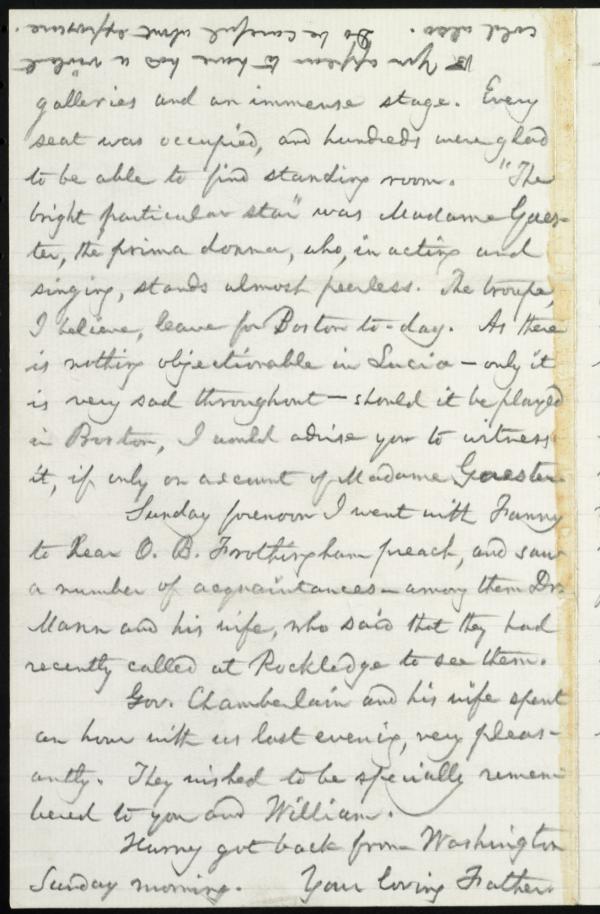 galleries and an immense stage. Every
seat was occupied, and hundreds were glad
to be able to find standing room. "The
bright particular star" was Madame Gaes-
ter, the prima donna, who, in acting and
singing, stands almost peerless. The troupe,
I believe, leave for Boston to-day. As there
is nothing objectionable in Lucia — only it
is very sad throughout — should it be played
in Boston, I would advise you to witness
it, if only on account of Madame Gaester.
Sunday forenoon I went with Fanny
to hear O. B. Frothingham preach, and saw
a number of acquaintances — among them Dr.
Mann and his wife, who said that they had
recently called at Rockledge to see them.
Gov. Chamberlain and his wife spent
an hour with us last evening, very pleas-
antly. They wished to be specially remem-
bered to you and William.
Harry got back from Washington
Sunday morning. Your loving Father.
You appear to have had a violent
cold also. Do be careful about exposure.